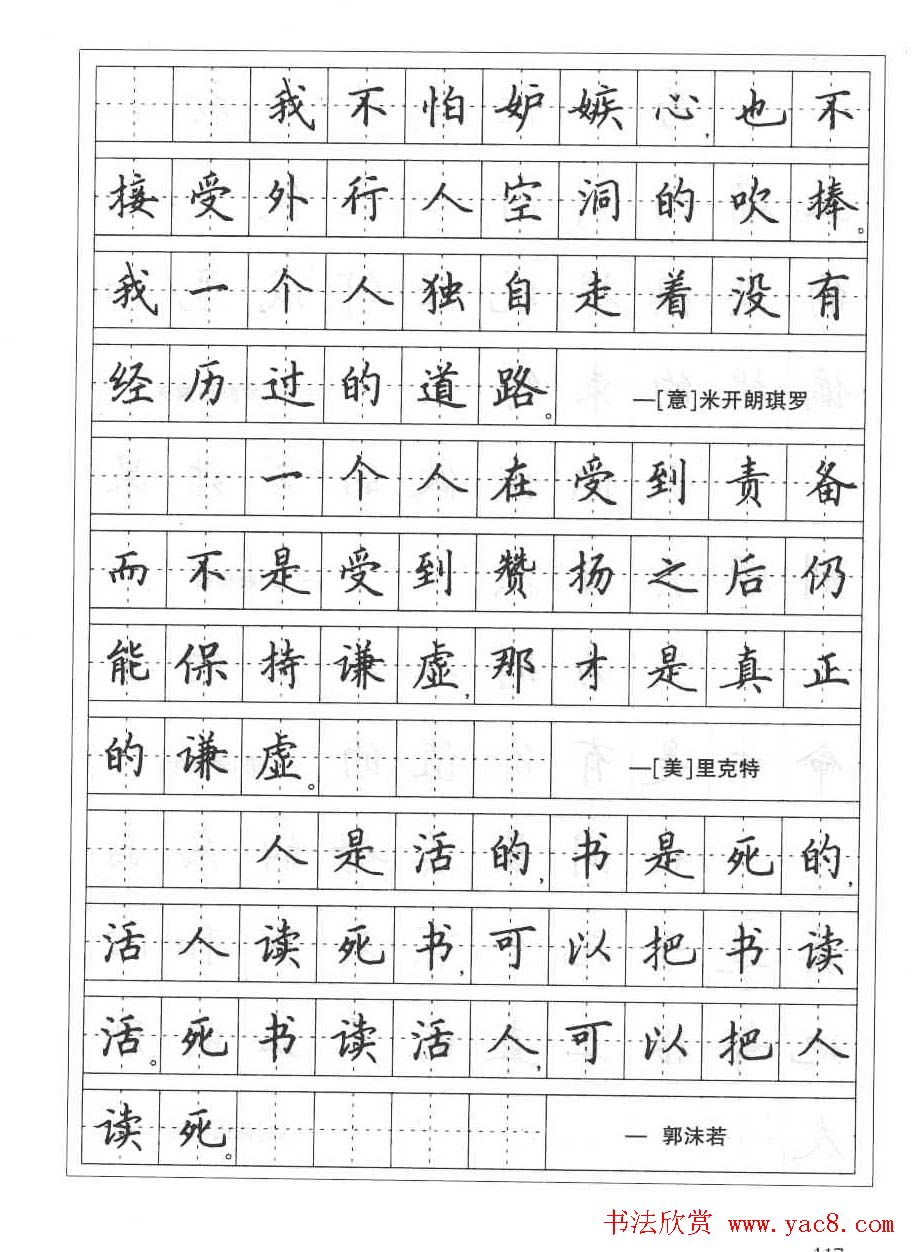 我不怕妒嫉心,也不
接受外行人空洞的吹捧。
我一个人独自走着没有
经历过的道路。 —[意]米开朗琪罗
一个人在受到责备
而不是受到赞扬之后仍
能保持谦虚,那才是真正
的谦虚。 —[美]里克特
人是活的,书是死的,
活人读死书,可以把书读
活。死书读活人,可以把人
读死。 — 郭沫若
书法欣赏 www.yac8.com